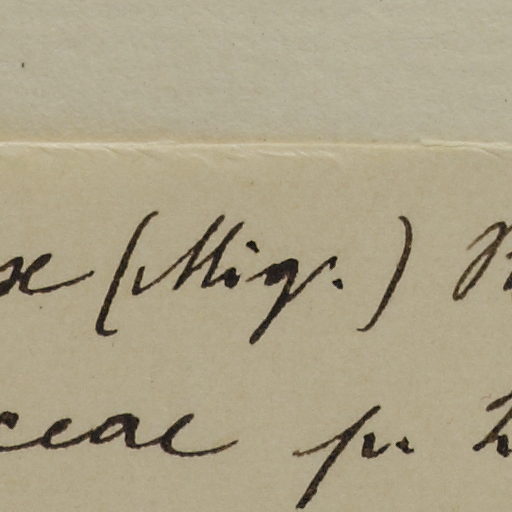 (Miq.)
ceae p.